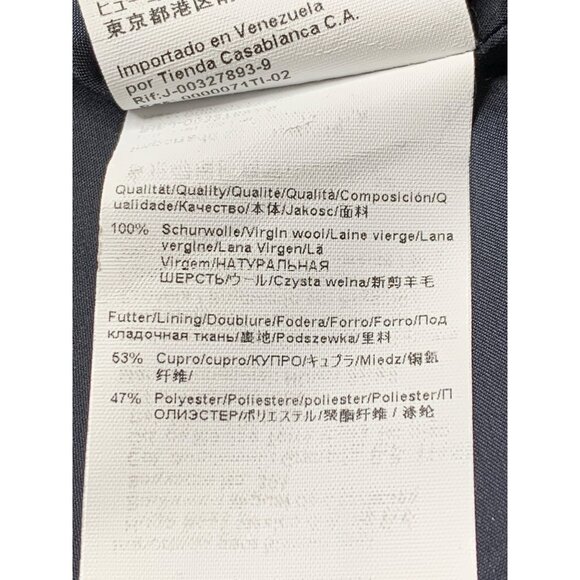 東京都港区
Importado en Venezuela
por Tienda Casablanca C.A.
Rif:J-00327893-9
0000071TI-02
Qualität/Quality/Qualité/Qualità/Composición/Q
ualidade/Качество/本体/Jakosc/面料
100% Schurwolle/Virgin wool/Laine vierge/Lana
vergine/Lana Virgen/Lã
Virgem/НАТУРАЛЬНАЯ
ШЕРСТЬ/ウール/Czysta welna/新剪羊毛
Futter/Lining/Doublure/Fodera/Forro/Forro/Под
кладочная ткань/裏地/Podszewka/里料
53% Cupro/cupro/КУПРО/キュプラ/Miedz/铜氨
纤维/
47% Polyester/Poliestere/poliester/Poliester/П
ОЛИЭСТЕР/ポリエステル/聚酯纤维 / 涤纶